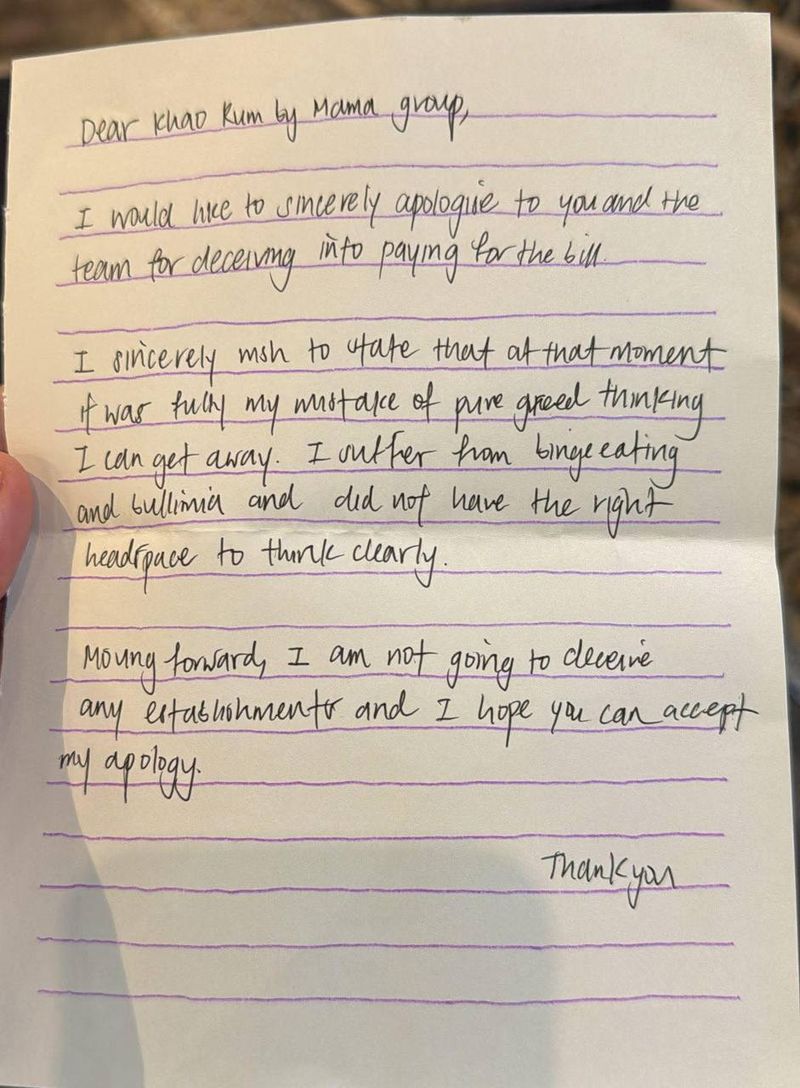 Dear Khao Kum by Mama group,
I would like to sincerely apologie to you and the
team for deceiving into paying for the bill.
I sincerely wish to state that at that moment
it was fully my mistake of pure greed thinking
I can get away. I suffer from binge eating
and bullimia and did not have the right
headspace to think clearly.
Moving forward, I am not going to deceive
any establishments and I hope you can accept
my apology.
Thank you